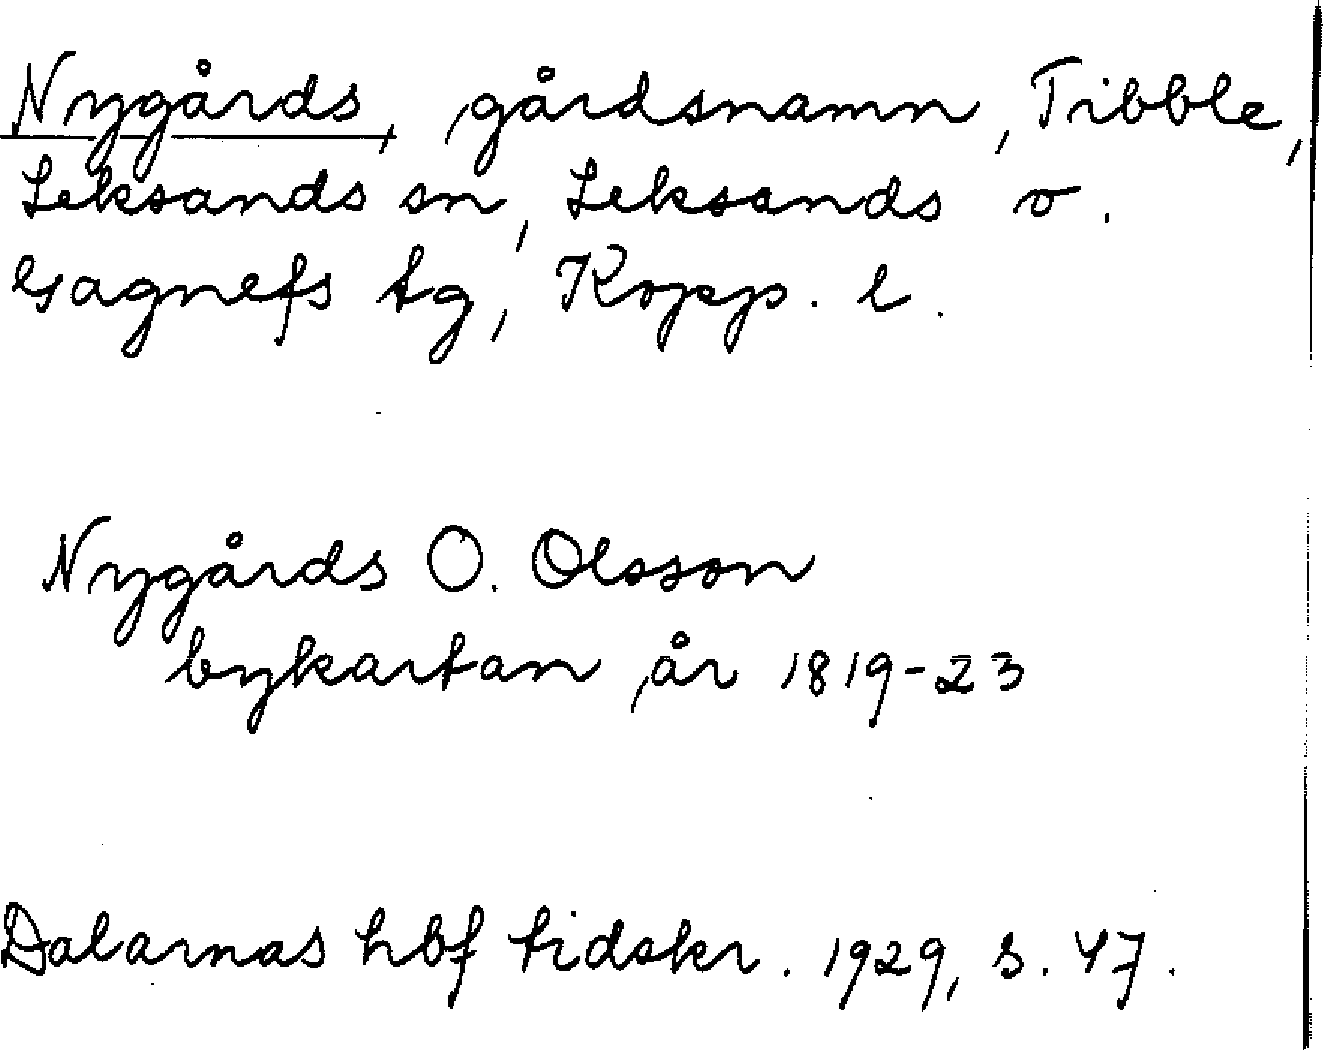 Nygårds, gårdsnamn, Tibble,
Leksands sn, Leksands o.
Gagnefs tg, Kopp. l.
Nygårds O. Olsson
bykartan år 1819-23
Dalarnas hbf tidskr. 1929, s. 47.